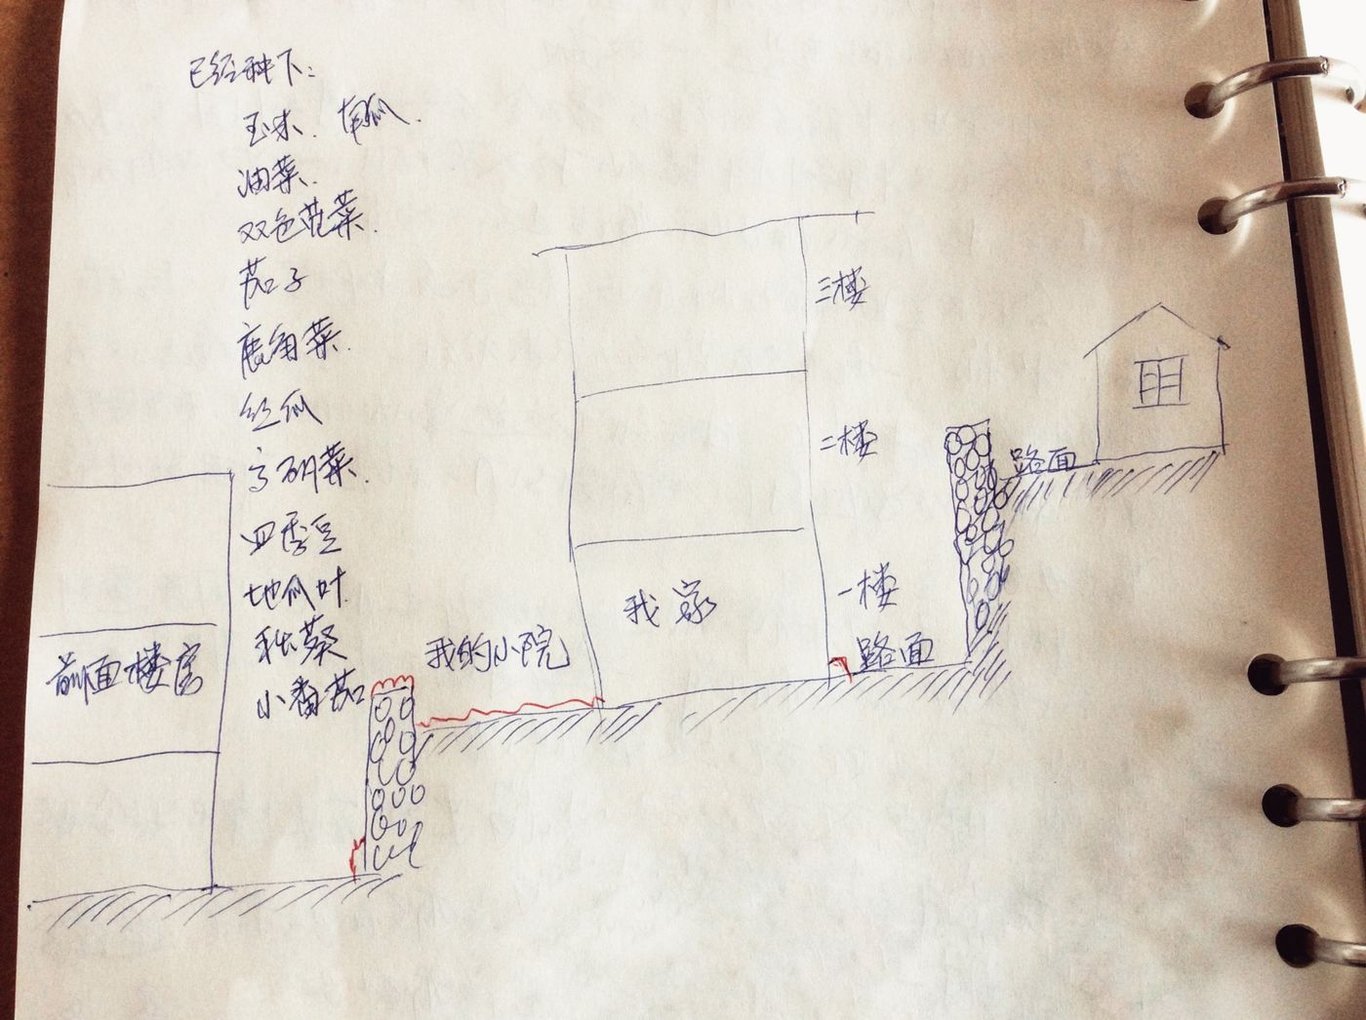 已经种下：
玉米、南瓜、
油菜、
双色苋菜、
茄子
鹿角菜、
丝瓜
四季豆
地瓜叶
秋葵
小番茄
三楼
二楼
一楼
路面
路面
我家
我的小院
前面楼房